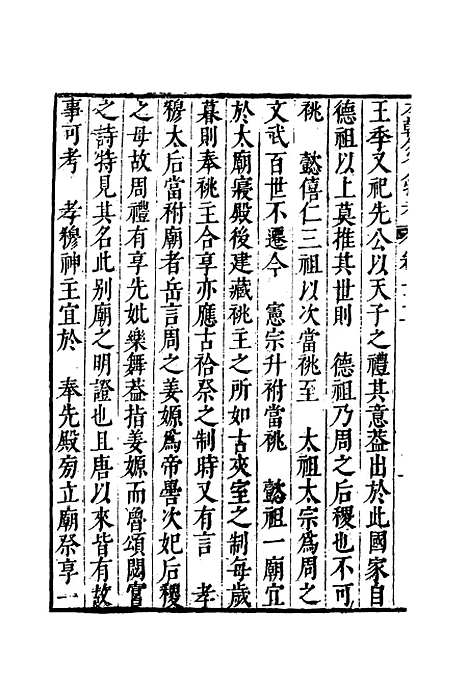 王季又祀先公以天子之禮其意葢出於此國家自
德祖以上莫推其世則　德祖乃周之后稷也不可
祧　懿僖仁三祖以次當祧至　太祖太宗爲周之
文武百世不遷今　憲宗升祔當祧　懿祖一廟宜
於太廟寢殿後建藏祧主之所如古夾室之制每歲
暮則奉祧主合享亦應古祫祭之制時又有言　孝
穆太后當祔廟者岳言周之姜嫄爲帝嚳次妃后稷
之母故周禮有享先妣樂舞葢指姜嫄而魯頌閟宮
之詩特見其名此别廟之明證也且唐以來皆有故
事可考　孝穆神主宜於　奉先殿旁立廟祭享一